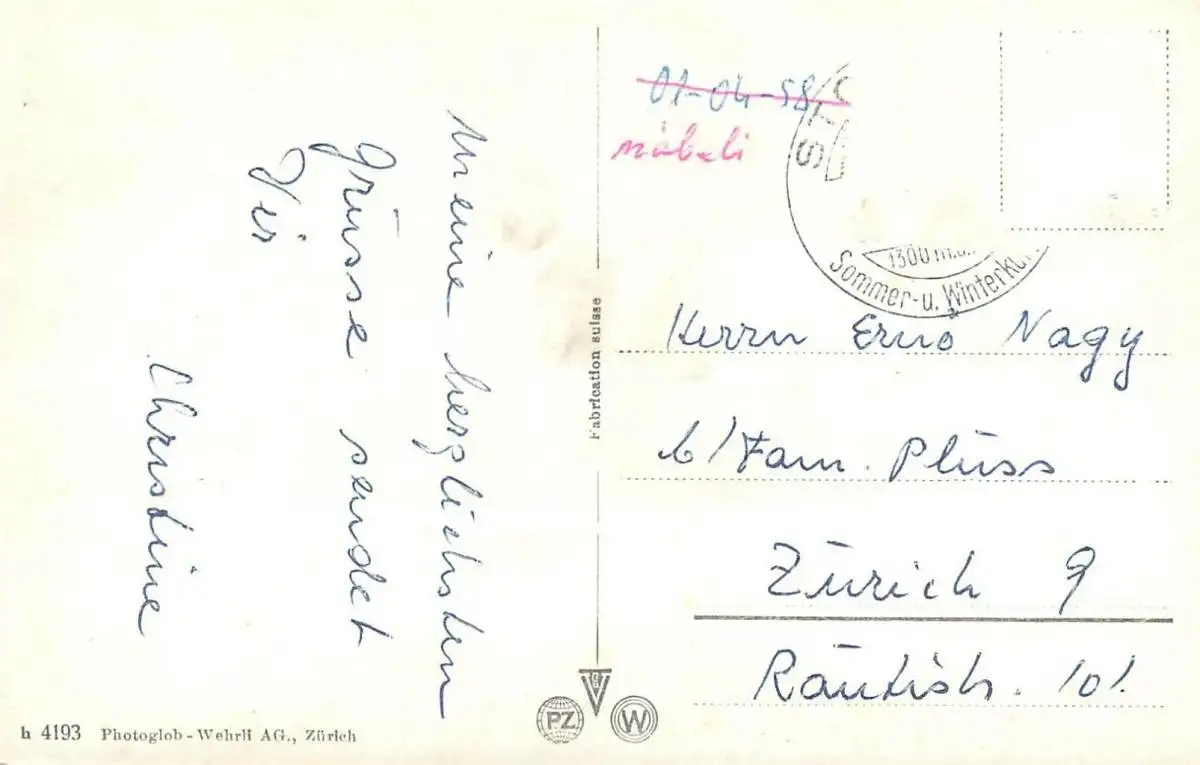 Meine herzlichsten
Grüsse sendet
Dir
Christine
01-04-58
Sommer-u. Winterku
1300 m.ü.
Herrn Ernö Nagy
b/Fam. Plüss
Zürich 9
Räutistr. 101.
Fabrication suisse
PZ
W
h 4193 Photoglob-Wehrli AG., Zürich